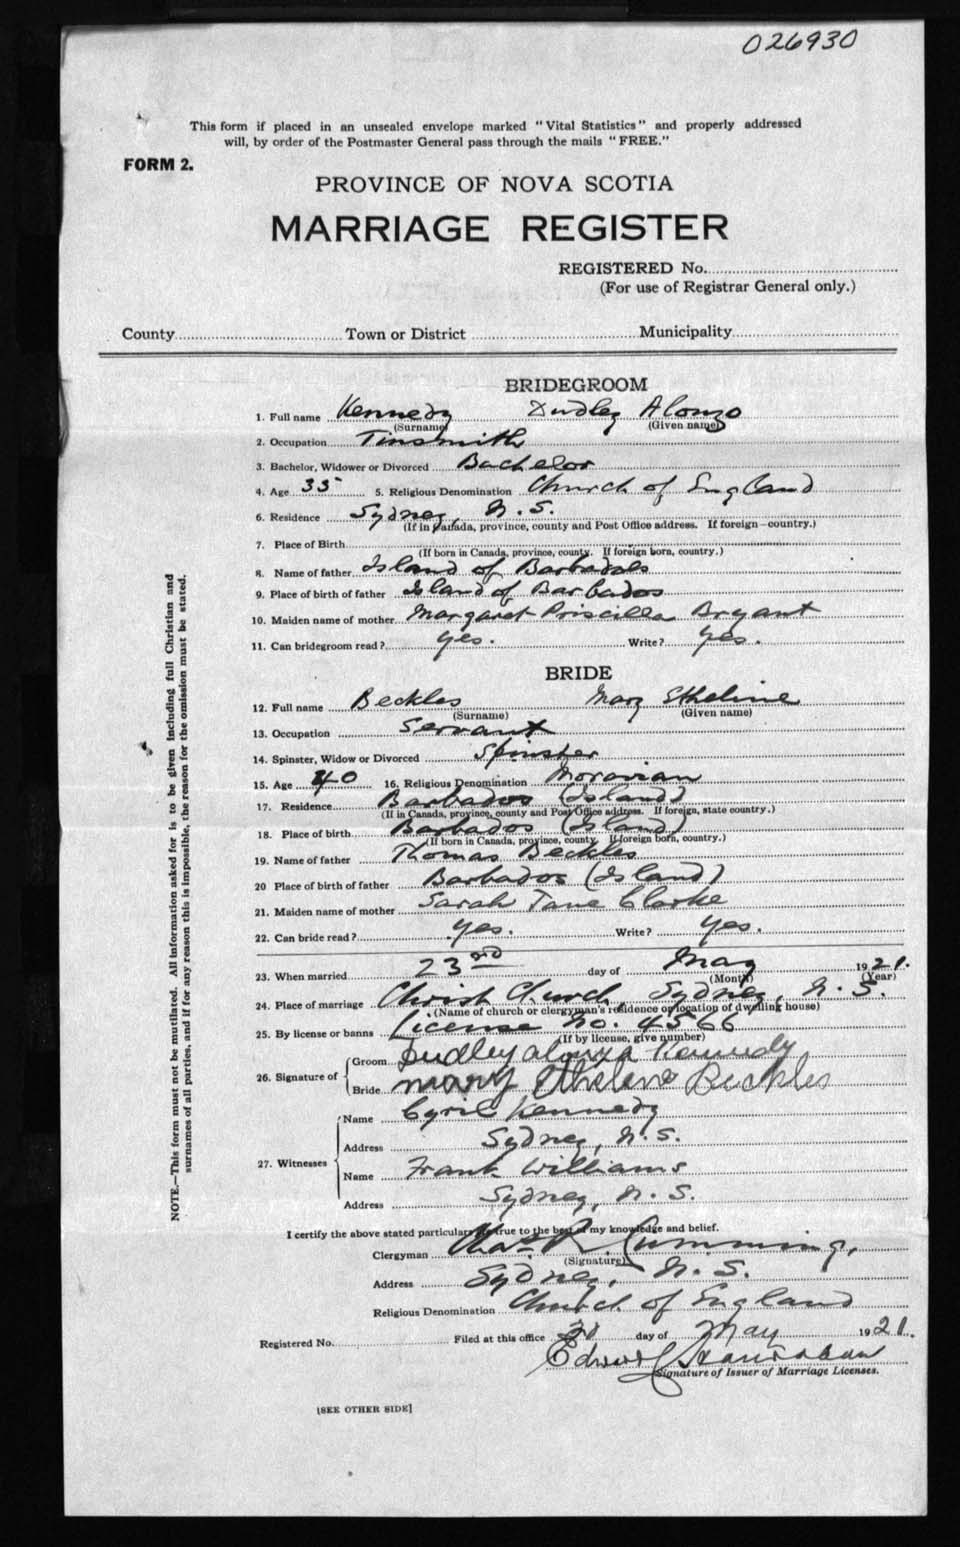 026930
This form if placed in an unsealed envelope marked "Vital Statistics" and properly addressed
will, by order of the Postmaster General pass through the mails "FREE."
FORM 2.
PROVINCE OF NOVA SCOTIA
MARRIAGE REGISTER
REGISTERED No.
(For use of Registrar General only.)
County Town or District Municipality
BRIDEGROOM
1. Full name Kennedy Dudley Alonzo
(Surname) (Given name)
2. Occupation Tinsmith
3. Bachelor, Widower or Divorced Bachelor
4. Age 35 5. Religious Denomination Church of England
6. Residence Sydney, N. S.
(If in Canada, province, county and Post Office address. If foreign—country.)
7. Place of Birth
(If born in Canada, province, county. If foreign born, country.)
8. Name of father Island of Barbadols
9. Place of birth of father Island of Barbados
10. Maiden name of mother Margaret Priscilla Bryant
11. Can bridegroom read? Yes. Write? Yes.
BRIDE
12. Full name Beckles Mary Etheline
(Surname) (Given name)
13. Occupation Servant
14. Spinster, Widow or Divorced Spinster
15. Age 40 16. Religious Denomination Moravian
17. Residence Barbados (Island)
(If in Canada, province, county and Post Office address. If foreign, state country.)
18. Place of birth Barbados (Island)
(If born in Canada, province, county. If foreign born, country.)
19. Name of father Thomas Beckles
20 Place of birth of father Barbados (Island)
21. Maiden name of mother Sarah Jane Clarke
22. Can bride read? Yes. Write? Yes.
23. When married 23rd day of May 1921.
(Month) (Year)
24. Place of marriage Christ Church, Sydney, N. S.
(Name of church or clergyman's residence or location of dwelling house)
25. By license or banns License No. 4566
(If by license, give number)
26. Signature of Groom Dudley alonza Kennedy
Bride mary Ethelene Beckles
27. Witnesses
Name Cyril Kennedy
Address Sydney, N. S.
Name Frank Williams
Address Sydney, N. S.
I certify the above stated particulars are true to the best of my knowledge and belief.
Clergyman Chas. R. Cumming,
(Signature)
Address Sydney, N. S.
Religious Denomination Church of England
Registered No. Filed at this office 31 day of May 1921.
Edward
Signature of Issuer of Marriage Licenses.
[SEE OTHER SIDE]
NOTE.—This form must not be mutilated. All information asked for is to be given including full Christian and
surnames of all parties, and if for any reason this is impossible, the reason for the omission must be stated.